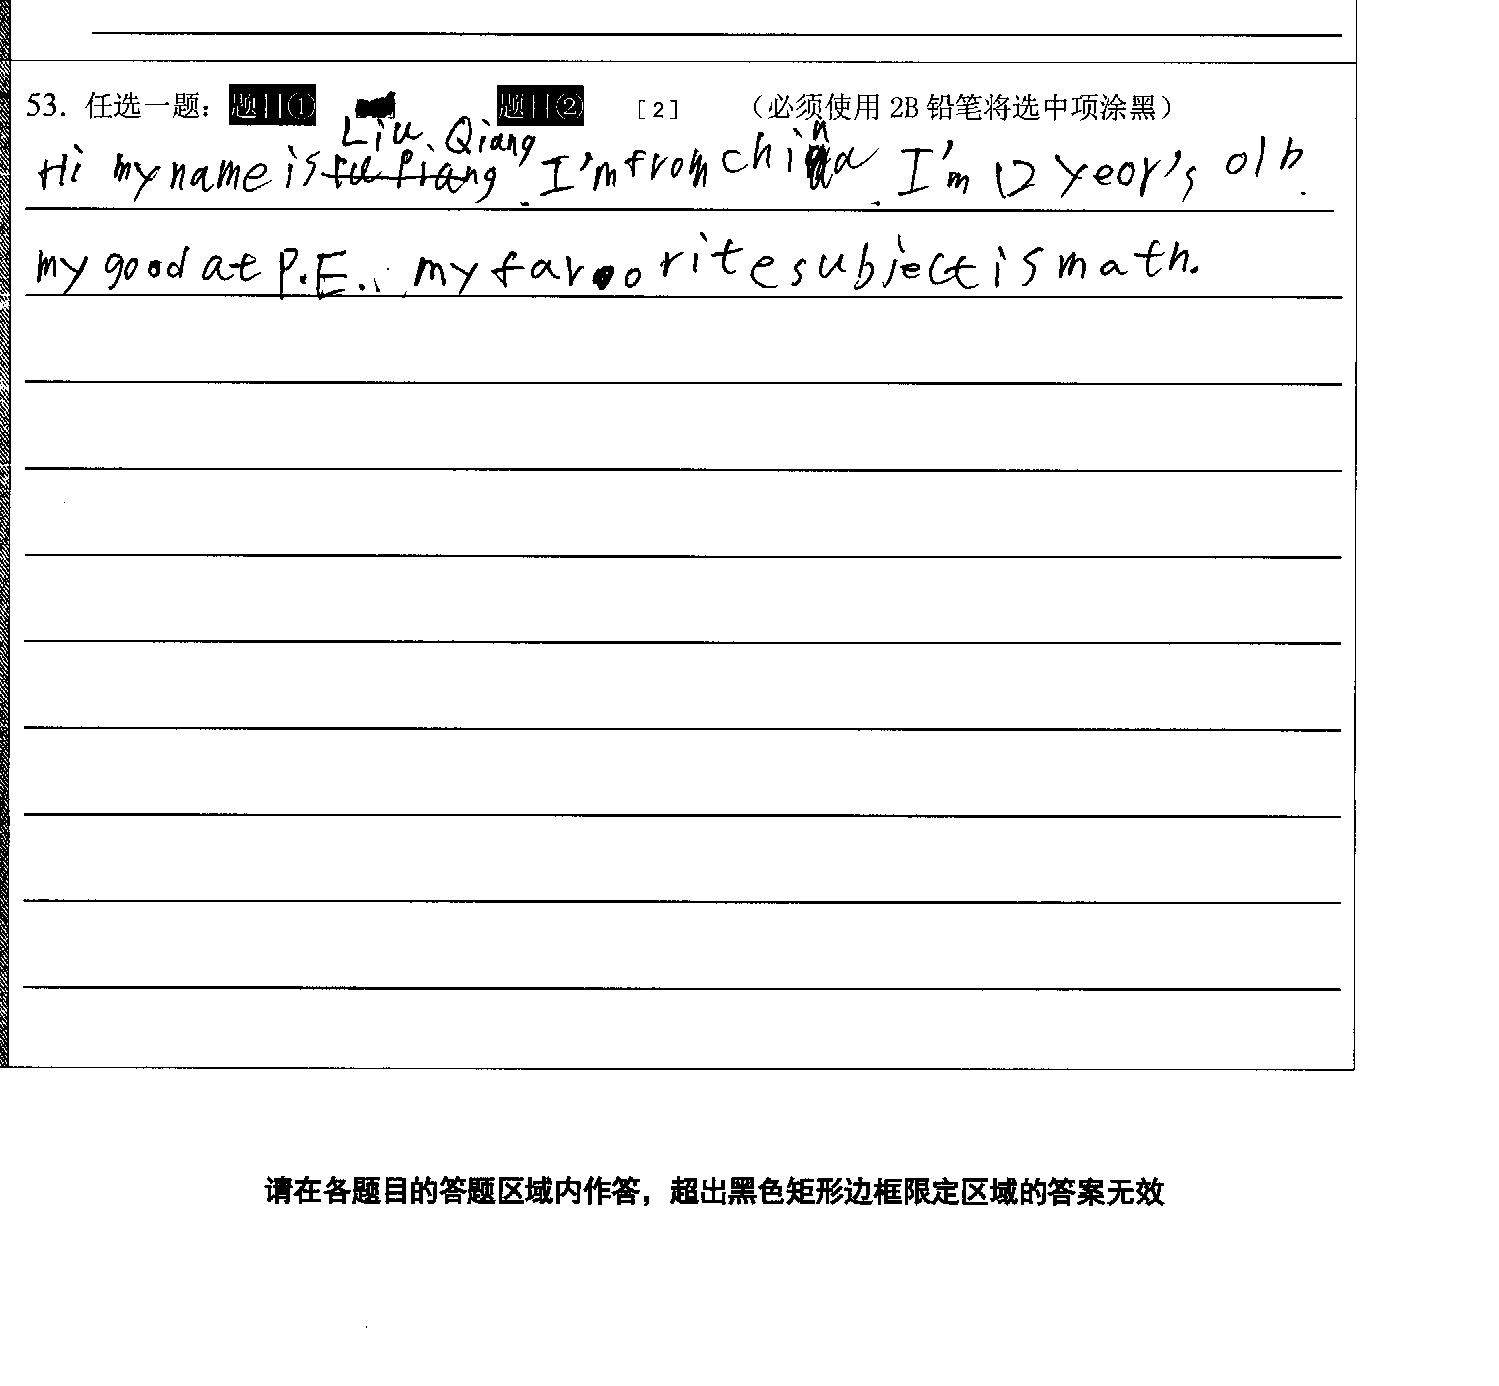 53. 任选一题： 题目① 题目② [2] （必须使用 2B 铅笔将选中项涂黑）
Liu Qiang
Hi my name is I'm from china. I'm 12 yeor's olb.
my good at P.E.. my favoorite subject is math.
请在各题目的答题区域内作答，超出黑色矩形边框限定区域的答案无效